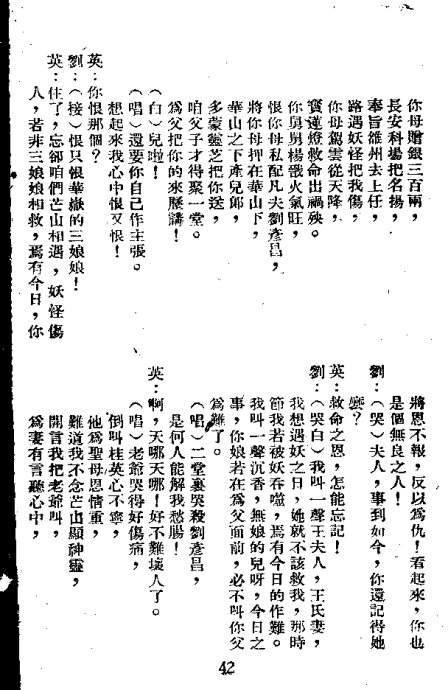 你母贈銀三百兩，
長安科場把名揚，
奉旨雒州去上任，
路遇妖怪把我傷，
你母駕雲從天降，
寶蓮燈救命出禍殃。
你舅舅楊戩火氣旺，
恨你母私配凡夫劉彥昌，
將你母押在華山下，
華山之下產兒郎，
多蒙靈芝把你送，
咱父子才得聚一堂。
爲父把你的來歷講！
（白）兒啦！
（唱）還要你自己作主張。
想起來我心中恨又恨！
英：你恨那個？
劉：（接）恨只恨華嶽的三娘娘！
英：住了，忘卻咱們芒山相遇，妖怪傷
人，若非三娘娘相救，焉有今日，你
將恩不報，反以爲仇！看起來，你也
是個無良之人！
劉：（哭）夫人，事到如今，你還記得她
麼？
英：救命之恩，怎能忘記！
劉：（哭白）我叫一聲王夫人，王氏妻，
我想遇妖之日，她就不該救我，那時
節我若被妖吞噬，焉有今日的作難。
我叫一聲沉香，無娘的兒呀，今日之
事，你娘若在爲父面前，必不叫你父
爲難了。
（唱）二堂裏哭殺劉彥昌，
是何人能解我愁腸！
英：啊，天哪天哪！好不難壞人了。
（唱）老爺哭得好傷痛，
倒叫桂英心不寧，
他爲聖母恩情重，
難道我不念芒山顯神靈，
開言我把老爺叫，
爲妻有言聽心中，
42